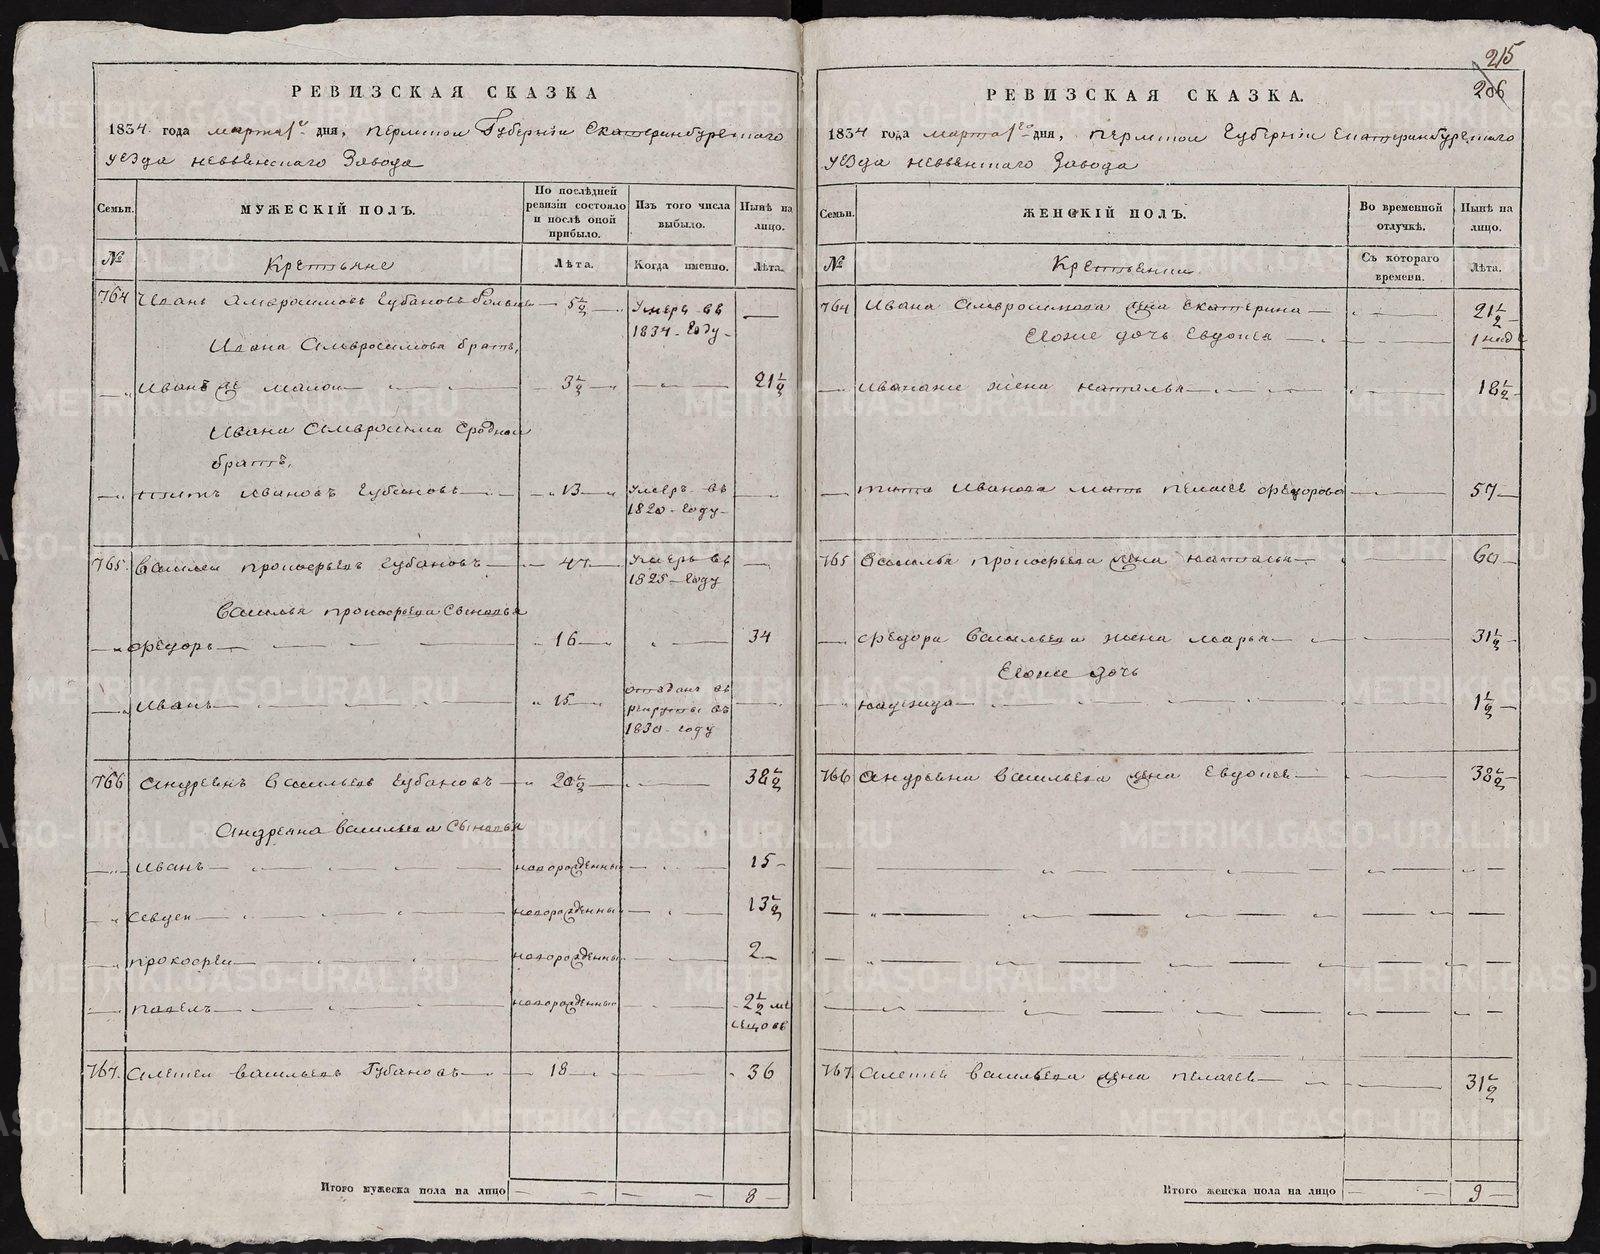 215
206
РЕВИЗСКАЯ СКАЗКА
1834 года марта 1го дня, пермской Губернiи Екатеринбургскаго
уезда невьянскаго Завода
Семьи.
МУЖЕСКIЙ ПОЛЪ.
По послѣдней ревизiи состояло и послѣ оной прибыло.
Изъ того числа выбыло.
Нынѣ на лицо.
№
Крестьяне
Лѣта.
Когда именно.
Лѣта.
764 Иванъ Амвросимовъ Губановъ большой — 5½ — Умеръ въ —
1834 году —
Ивана Амвросимова братъ,
Иванъ же малой — 3½ — 21½
Ивана Амвросима сродной
братъ,
титъ Ивановъ Губановъ — 13 — умеръ въ —
1820 году —
765 Василей прокофьевъ Губановъ — 47 — Умеръ въ —
1825 году
Василья прокофьева Сыновья
Федоръ — 16 — 34
Иванъ — 15 — отданъ въ
рекруты въ
1830 году
766 Андреянъ Васильевъ Губановъ — 20½ — 38½
Андреяна Васильева Сыновья
Иванъ — новорожденный — 15
Евсей — новорожденный — 13½
прокофей — новорожденный — 2
павелъ — новорожденный — 2½ ме
сецовъ
767 Алексей Васильевъ Губановъ — 18 — 36
Итого мужеска пола на лицо — — 8
РЕВИЗСКАЯ СКАЗКА.
1834 года марта 1го дня, пермской Губернiи Екатеринбургскаго
уезда невьянскаго Завода
Семьи.
ЖЕНСКIЙ ПОЛЪ.
Во временной отлучкѣ.
Нынѣ на лицо.
№
Крестьянки
Съ котораго времени.
Лѣта.
764 Ивана Амвросимова жена Екатерина — 21½
Егоже дочь Евдокея — 1 неде
Иванаже жена наталья — 18½
тита Иванова мать пелагея федорова — 57
765 Василья прокофьева жена наталья — 60
федора Васильева жена марья — 31½
Егоже дочь
надежда — 1½
766 Андреяна Васильева жена Евдокея — 38½
767 Алексея Васильева жена пелагея — 31½
Итого женска пола на лицо — 9
METRIKI.GASO-URAL.RU